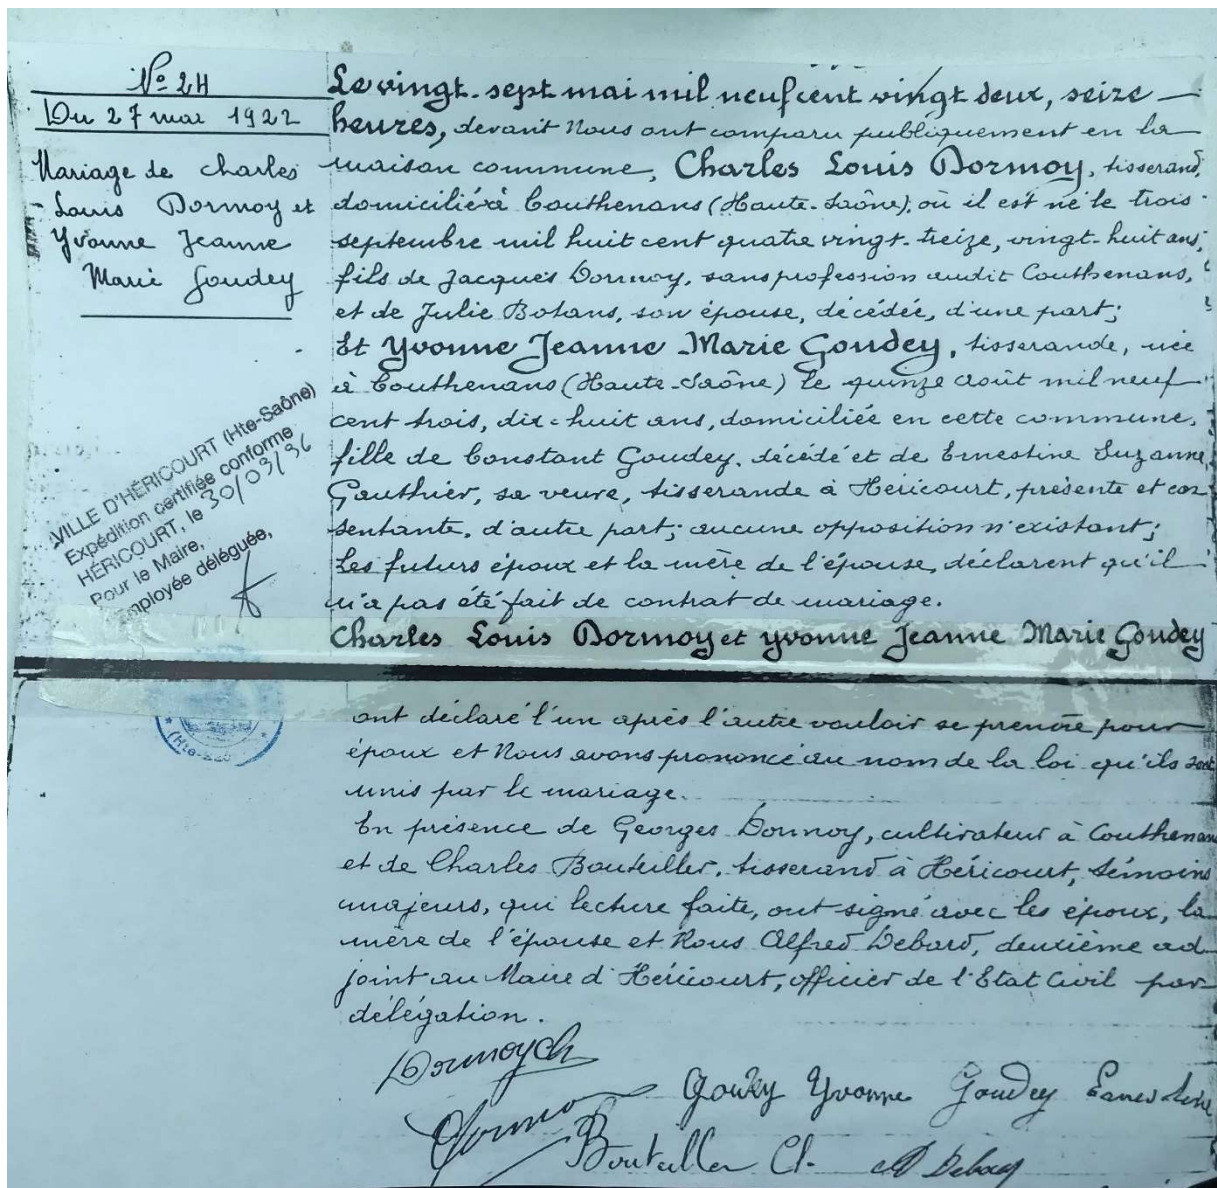 N° 24
Du 27 mai 1922
Mariage de Charles
Louis Dormoy et
Yvonne Jeanne
Marie Goudey
VILLE D'HÉRICOURT (Hte-Saône)
Expédition certifiée conforme
HÉRICOURT, le 30/03/96
Pour le Maire,
Employée déléguée,
Le vingt-sept mai mil neuf cent vingt deux, seize
heures, devant Nous ont comparu publiquement en la
maison commune, Charles Louis Dormoy, tisserand,
domicilié à Couthenans (Haute-Saône), où il est né le trois
septembre mil huit cent quatre vingt-treize, vingt-huit ans,
fils de Jacques Dormoy, sans profession audit Couthenans,
et de Julie Botans, son épouse, décédée, d'une part;
Et Yvonne Jeanne Marie Goudey, tisserande, née
à Couthenans (Haute-Saône) le quinze août mil neuf
cent trois, dix-huit ans, domiciliée en cette commune,
fille de Constant Goudey, décédé et de Ernestine Suzanne
Gauthier, sa veuve, tisserande à Héricourt, présente et con
sentante, d'autre part; aucune opposition n'existant;
Les futurs époux et la mère de l'épouse, déclarent qu'il
n'a pas été fait de contrat de mariage.
Charles Louis Dormoy et Yvonne Jeanne Marie Goudey
(Hte-
ont déclaré l'un après l'autre vouloir se prendre pour
époux et Nous avons prononcé au nom de la loi qu'ils sont
unis par le mariage.
En présence de Georges Dormoy, cultivateur à Couthenans
et de Charles Bouteiller, tisserand à Héricourt, témoins
majeurs, qui lecture faite, ont signé avec les époux, la
mère de l'épouse et Nous Alfred Debard, deuxième ad
joint au Maire d'Héricourt, officier de l'Etat Civil par
délégation.
Dormoy Ch
Goudey Yvonne Goudey Ernestine
Dormoy
Bouteiller Ch. A Debard